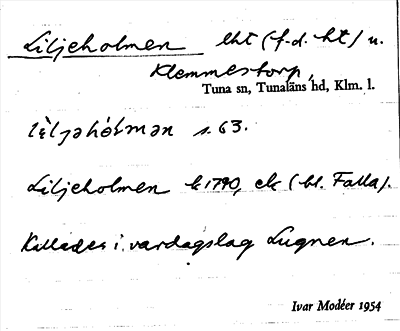 Liljeholmen lht (f.d. ht) u.
Klemmestorp,
Tuna sn, Tunaläns hd, Klm. l.
s. 63.
Liljeholmen k 1790, ek (bl. Falla).
Kallades i vardagslag Lugnen.
Ivar Modéer 1954